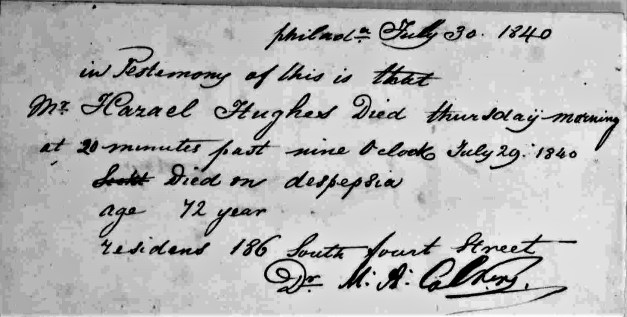 philada July 30. 1840
in Testemony of this is that
Mr. Hazael Hughes Died thursday morning
at 20 minutes past nine Oclock July 29. 1840
Died on despepsia
age 72 year
residens 186 South fourt Street
Dr. M. A.